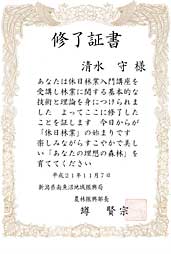 修了証書
清水 守 様
あなたは休日林業入門講座を
受講し林業に関する基本的な
技術と理論を身につけられま
した よってここに修了した
ことを証します 今日からが
「休日林業」の始まりです
楽しみながらすこやかで美し
い「あなたの理想の森林」を
育ててください
平成21年11月7日
新潟県南魚沼地域振興局
農林振興部長
賢宗